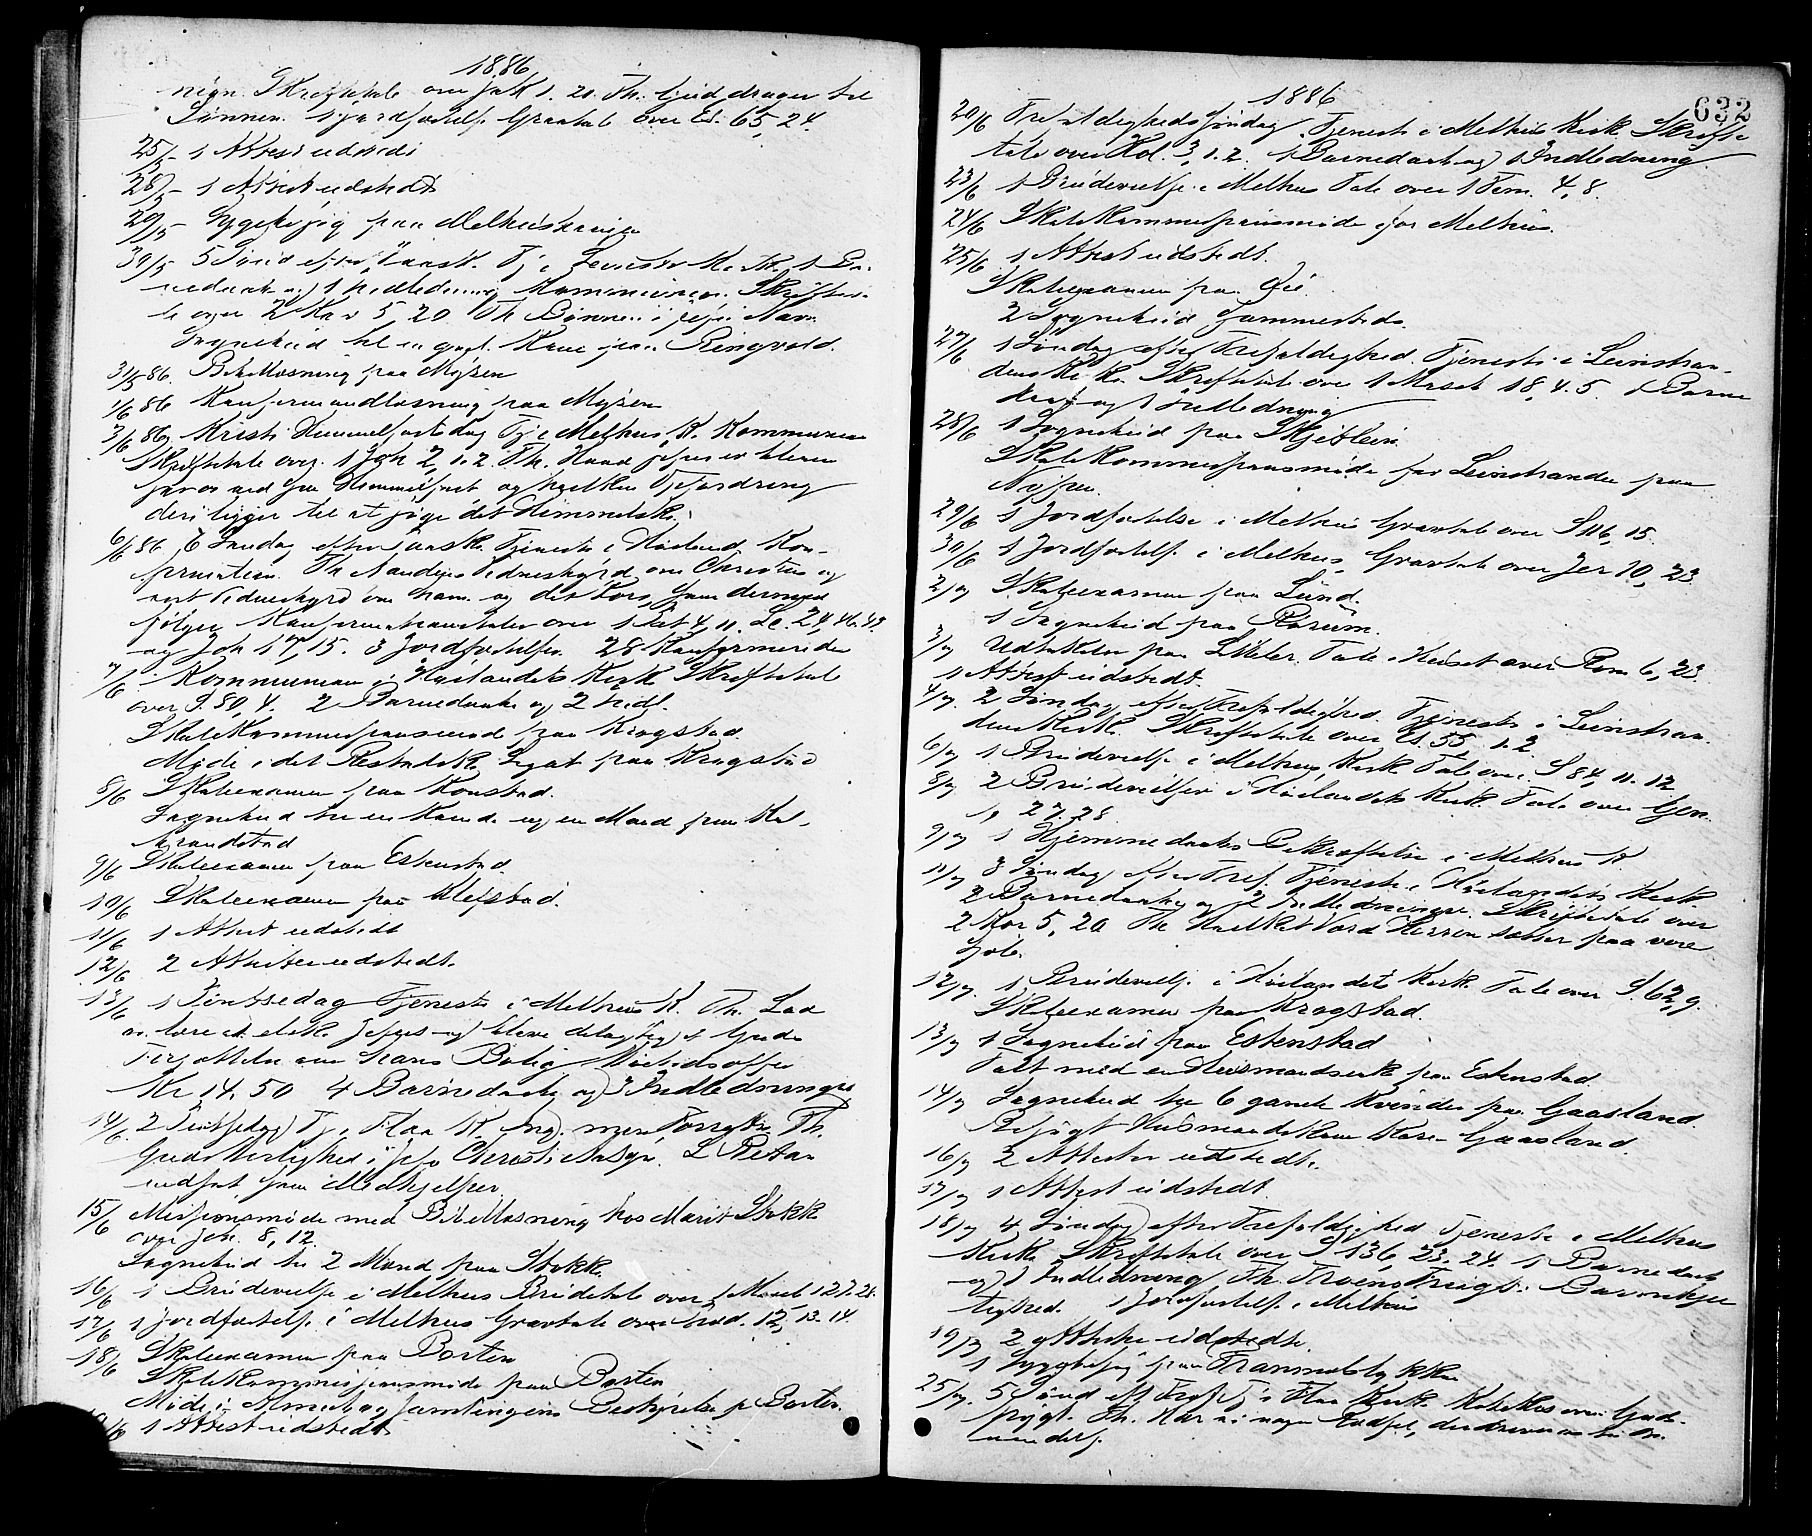 1886
Skriftetale over Joh 1. 21. Th. Gud drager til
Sønnen. 1 Jordfæstelse Gravtale over Es. 65, 24.
25/5 - 1 Attest udstedt
28/5 - 1 Attest udstedt
29/5 - Sygebesøg paa
30/5 5 Sønd efter Paask. Tj i K. 1 Bar-
nedaab og 1 Indledning Kommunion. Skrifteta-
le over 2 Kor 5, 20 Th Bønnen i Jesu Navn
Sognebud til en gagl. Kone paa Ringvold.
31/5 86. Bibellæsning paa Møysen
1/6 86 Konfirmandlæsning paa Møysen
3/6 86 Kristi Himmelfartsdag Tj i Melhus K. Kommunion
Skriftetale over 1 Joh 2, 1.2 Th. Hvad Jesus er bleven
for os ved sin Himmelfart og hvilken Opfordring
deri ligger til at søge det Himmelske.
6/6 86 6 Søndag efter Paaske Tjeneste i Høiland Kon-
firmation. Th Aandens Vidnesbyrd om Christus og
vort Vidnesbyrd om ham og det Kors, som dermed
følger Konfirmationstaler over 1 Pet 4, 11. Lc. 24, 46.47
og Joh 17, 15. 3 Jordfæstelser 28 Konfirmerede
7/6 Kommunion i Høilandets Kirke Skriftetale
over S. 80, 4. 2 Barnedaab og 2 Indl.
Skolekommissionsmøde paa Krogstad
Møde i det Legat paa Krogstad
8/6 Skoleexamen paa Konstad.
Sognebud til en Kvinde og en Mand paa
9/6 Skoleexamen paa Eskenstad.
10/6 Skoleexamen paa Klefstad.
11/6 1 Attest udstedt
12/6 2 Attester udstedt.
13/6 1 Pintsedag Tjeneste i Melhus K. Th. Lad
os lære at elske Jesus og blive delagtig i Guds
om hans Bolig Høitidsoffer
Kr 14.50 4 Barnedaab og 3 Indledninger
14/6 2 Pintsedag Tj i Flaa K. Th.
Guds Kjerlighed i Jesu Christi
indsat som Medhjelper
15/6 Missionsmøde med Bibellæsning hos Marit Stokke
over Joh. 8, 12.
Sognebud til 2 Mænd paa Stokke
16/6 1 Brudevielse i Melhus Brudetale over 1 Moseb 12
17/6 1 Jordfæstelse i Melhus Gravtale over Ord. 12, 13. 14.
18/6 Skoleexamen paa Borten
Skolekommissionsmøde paa Borten
Møde i Bestyrelse p Borten.
19/6 1 Attest udstedt
1886
632
20/6 Trefoldigheds Søndag Tjeneste i Melhus Kirke. Skrifte-
tale over Kol. 3, 1.2. 1 Barnedaab og 1 Indledning
23/6 1 Brudevielse i Melhus Tale over 1 Tim. 4, 8.
24/6 Skolekommissionsmøde for Melhus.
25/6 1 Attest udstedt.
Skoleexamen paa Øie.
2 Sognebud sammesteds.
27/6 1 Søndag efter Trefoldighed. Tjeneste i Leinstran-
dens Kirke Skriftetale over 1 Moseb 18, 4.5. 1 Barne
daab og 1 Indledning
28/6 1 Sognebud paa Skjeflein.
Skolekommissionsmøde for Leinstranden paa
Nypen.
29/6 1 Jordfæstelse i Melhus Gravtale over S 116, 15.
30/6 1 Jordfæstelse i Melhus, Gravtale over Jer 10, 23
2/7 Skoleexamen paa Lund.
1 Sognebud paa Rosum.
3/7 paa Tale i Huset over Rom 6, 23
1 Attest udstedt.
4/7. 2 Søndag efter Trefoldighed. Tjeneste i Leinstran-
dens Kirke. Skriftetale over Es. 55, 1.2
6/7 1 Brudevielse i Melhus Kirke Tale over S 84, 11. 12
8/7 2 Brudevielser i Høilandets Kirke Tale over Gen.
1, 27. 28
9/7 1 Hjemmedaabs Bekræftelse i Melhus K.
11/7 3 Søndag efter Tref. Tjeneste i Høilandets Kirke
2 Barnedaab og 2 Indledninger. Skriftetale over
2 Kor 5, 20 Th Hvilket Værd Herren sætter paa vore
Sjele.
12/7. 1 Brudevielse i Høilandets Kirke Tale over S. 62, 9.
Skoleexamen paa Krogstad.
13/7 1 Sognebud paa Eskenstad
Talt med en Huusmandsenke paa Eskenstad.
14/7 Sognebud til 6 gamle Kvinder paa Gaasland.
Besøgt Huusmandskone Gaasland.
16/7 2 Attester udstedt.
17/7 1 Attest udstedt.
18/7 4 Søndag efter Trefoldighed Tjeneste i Melhus
Kirke Skriftetale over S 136, 23. 24. 1 Barnedaab
og 1 Indledning Th. Troens Frugt: Barmhjer
tighed. 1 Jordfæstelse i Melhus
19/7 2 Attester udstedt.
1 Sygebesøg paa
25/7. 5 Sønd eft Tref Tj i Flaa Kirke. over Guds-
frygt. Th.